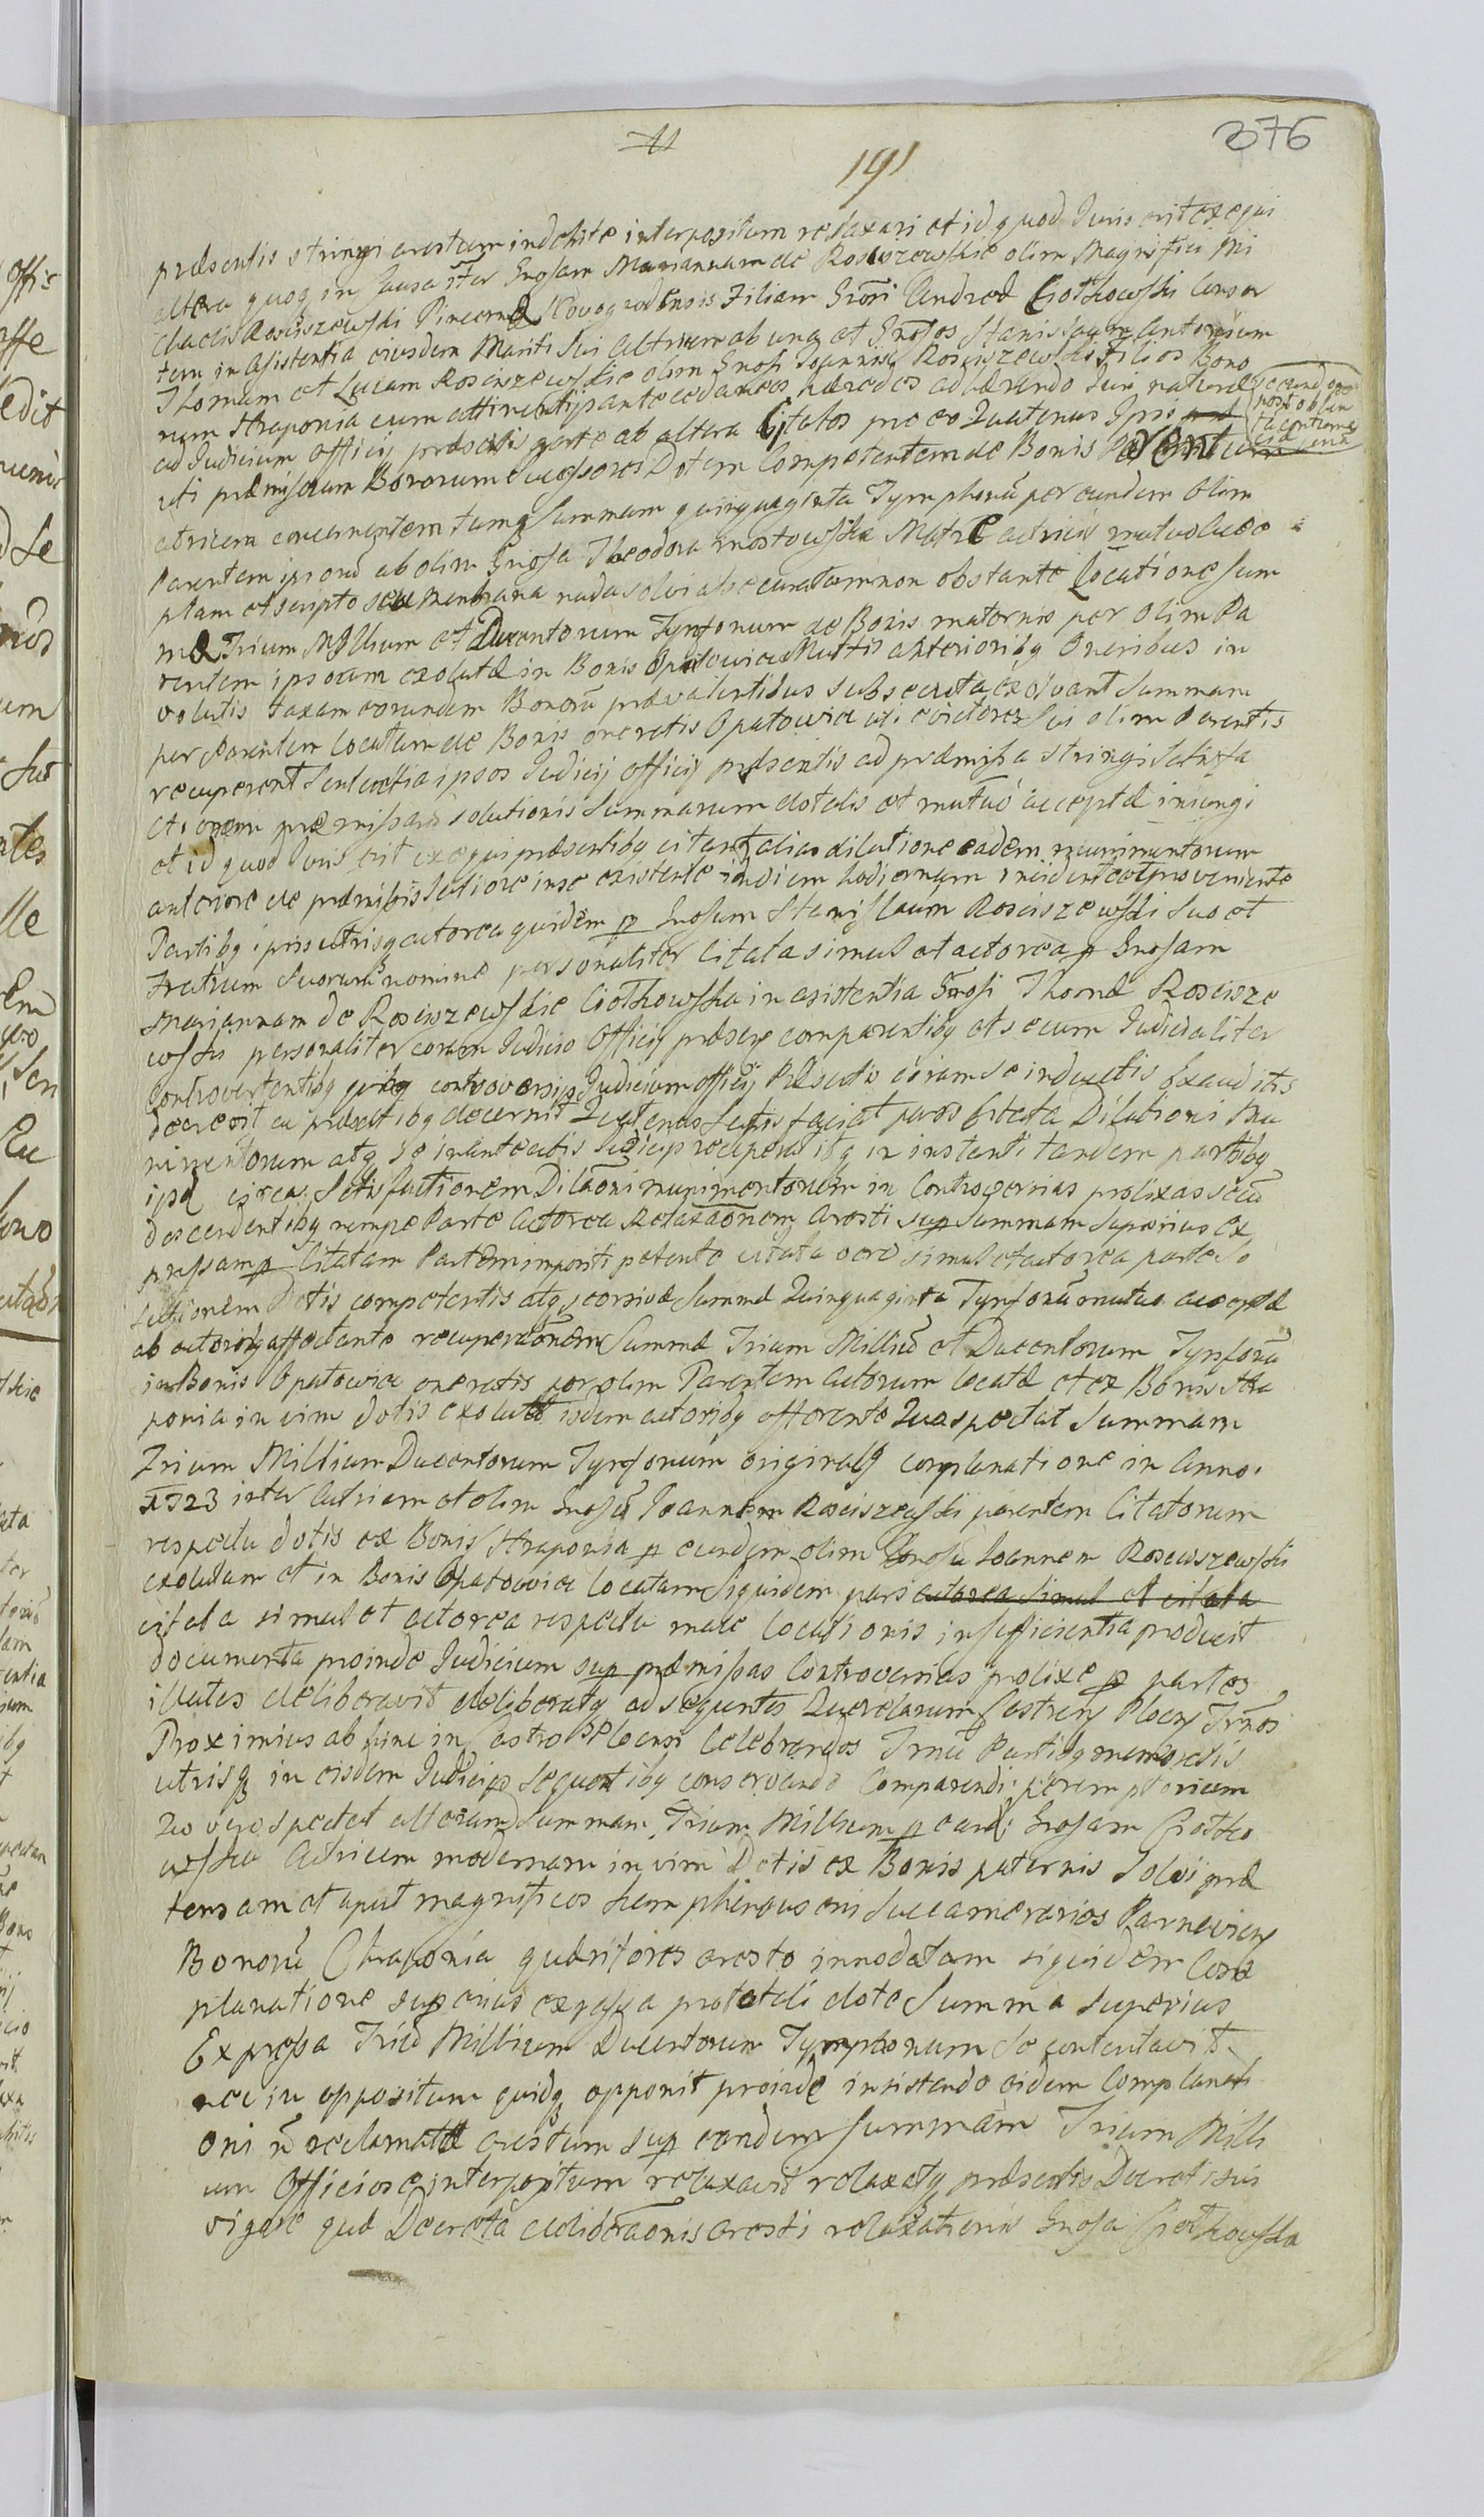 376
191
præsentis stringi arestum indebite interpositum relaxari et id quod Juris erit exequi
altera quoq in Causa itēr Gnosam Mariannam de Rosciszewskie olim Magnifici Mi
chaelis Rosciszewski Pincernæ Novogrodensis Filiam Grōsi Andreæ Ciołkowski Consor
tem in asistentia eiusdem Mariti sui Actricem ab una et Gnosos Stanislaum Antonium
Thomam et Lucam Rosciszewskie olim Gnosi Joannis Rosciszewski Filios Bono
rum Straponia cum attinentijs antecedaneos hæredes adhærendo sui naturæ
ad Judicium officij præsentis parte ab altera Citatos pro eo Quatenus Ipsi
uti præmissorum Bonorum Successores Dotem Competentem de Bonis
actricem concernentem tumq Summam quinquaginta Tymphonū per eundem olim
Parentem ipsorū ab olim Gnosa Theodora mostowska Matre actricis mutuo acce
ptam et scripto seu membrana nuda solvi assecuratam non obstante Locatione Sum
mæ Trium Millium et Ducentorum Tynfonum de Bonis maternis per olim Pa
rentem ipsorum exolutæ in Bonis Opatowice Multis anterioribq Oneribus in
volutis taxam eorundem Bonorū prævalentibus subsecuta exolvant Summam
per Parentem locatam de Bonis oneratis Opatowice uti evictores sui olim Parentis
recuperent Sententia ipsos Judicij officij præsentis ad præmissa stringi Satisfa
ctionem præmissarū solutionis Summarum dotalis et mutuō acceptæ iniungi
et id quod Juris erit exequi præsentibq citant alias dilatione eadem munimentorum
anteriore de præmissis latiore in se existente in diem hodiernam incidente et proveniente
Partibq ipsis utrisq actorea quidem p Gnosum Stanislaum Rosciszewski suo et
Fratrum Suorum nomine personaliter Citata simul et actorea p Gnosam
Mariannam de Rosciszewskie Ciołkowska in asistentia Gnosi Thomæ Roscisze
wski personaliter coram Judicio Officij præsen comparentibq et secum Judicialiter
Controvertentibq quibq controversijs Judicium officij Præsentis coram se inductis Exauditis
decrevit ea præsentibq decernit Quatenus Satisfaciat pars Citata Dilationi Mu
nimentorum atq se in anteactis Judicijs receperitibq in instanti tandem partibq
ipsæ circa Satisfactionem Dilāoni munimentorum in Controversias prolixas secū
descendentibq nempe Parte Actorea Relaxāonem Aresti sup Summam Superius ex
pressam p Citatam Partem impositi petente citata vero simul et actorea parte So
lutionem Dotis competentis atq seorsivæ Summæ Quinquaginta Tynfonū mutuo acceptæ
ab actoribq affectante recuperāonem Summæ Trium Milliū et Ducentorum Tynfonū
in Bonis Opatowice oneratis per olim Parentem Actorum locatæ et ex Bonis Stra
ponia in vim dotis exolutæ isdem actoribq offerente Qua spectat Summam
Trium Millium Ducentorum Tynfonum originalq complanatione in Anno
1723 inter Actricem et olim Gnosū Joannem Rosciszewski parentem Citatorum
respectu dotis ex Bonis Straponia p eundem olim Gnosū Joannem Rosciszewski
exolutam et in Bonis Opatowice locatam Siquidem pars actorea simul et citata
citata simul et actorea respectu male locationis insufficientia producit
documenta proinde Judicium sup præmissas Controversias prolixe p partes
illatas deliberavit deliberatq ad sequentes Querelarum Castren Plocen Trnos
Proximius ab hinc in Castro Plocensi Celebrandos Trnū Partibq memoratis
utrisq in eisdem Judicijs Sequentibq conservando Comparendi peremptorium
Quo vero spectat alteram Summam Trium Millium p eand Gnosam Ciołko
wska Actricem modernam in vim Dotis ex Bonis paternis Solvi præ
tensam et aput magnificos Succamerarios
Bonorū Chraponia quæsitores aresto innodatam siquidem Com
planatione superius expressa pro totali dote Summa Superius
Expressa Triū Millium Ducentorum Tymphonum se contentavit
nec in oppositum quidq opponit proinde insistendo eidem Complanati
oni ñ reclamatæ arestum sup eandem Summam Trium Milli
um Officiose interpositum relaxavit relaxatq præsentis Decreti sui
vigore quæ Decreta deliberāonis aresti relaxationis Gnosa Ciołkowska